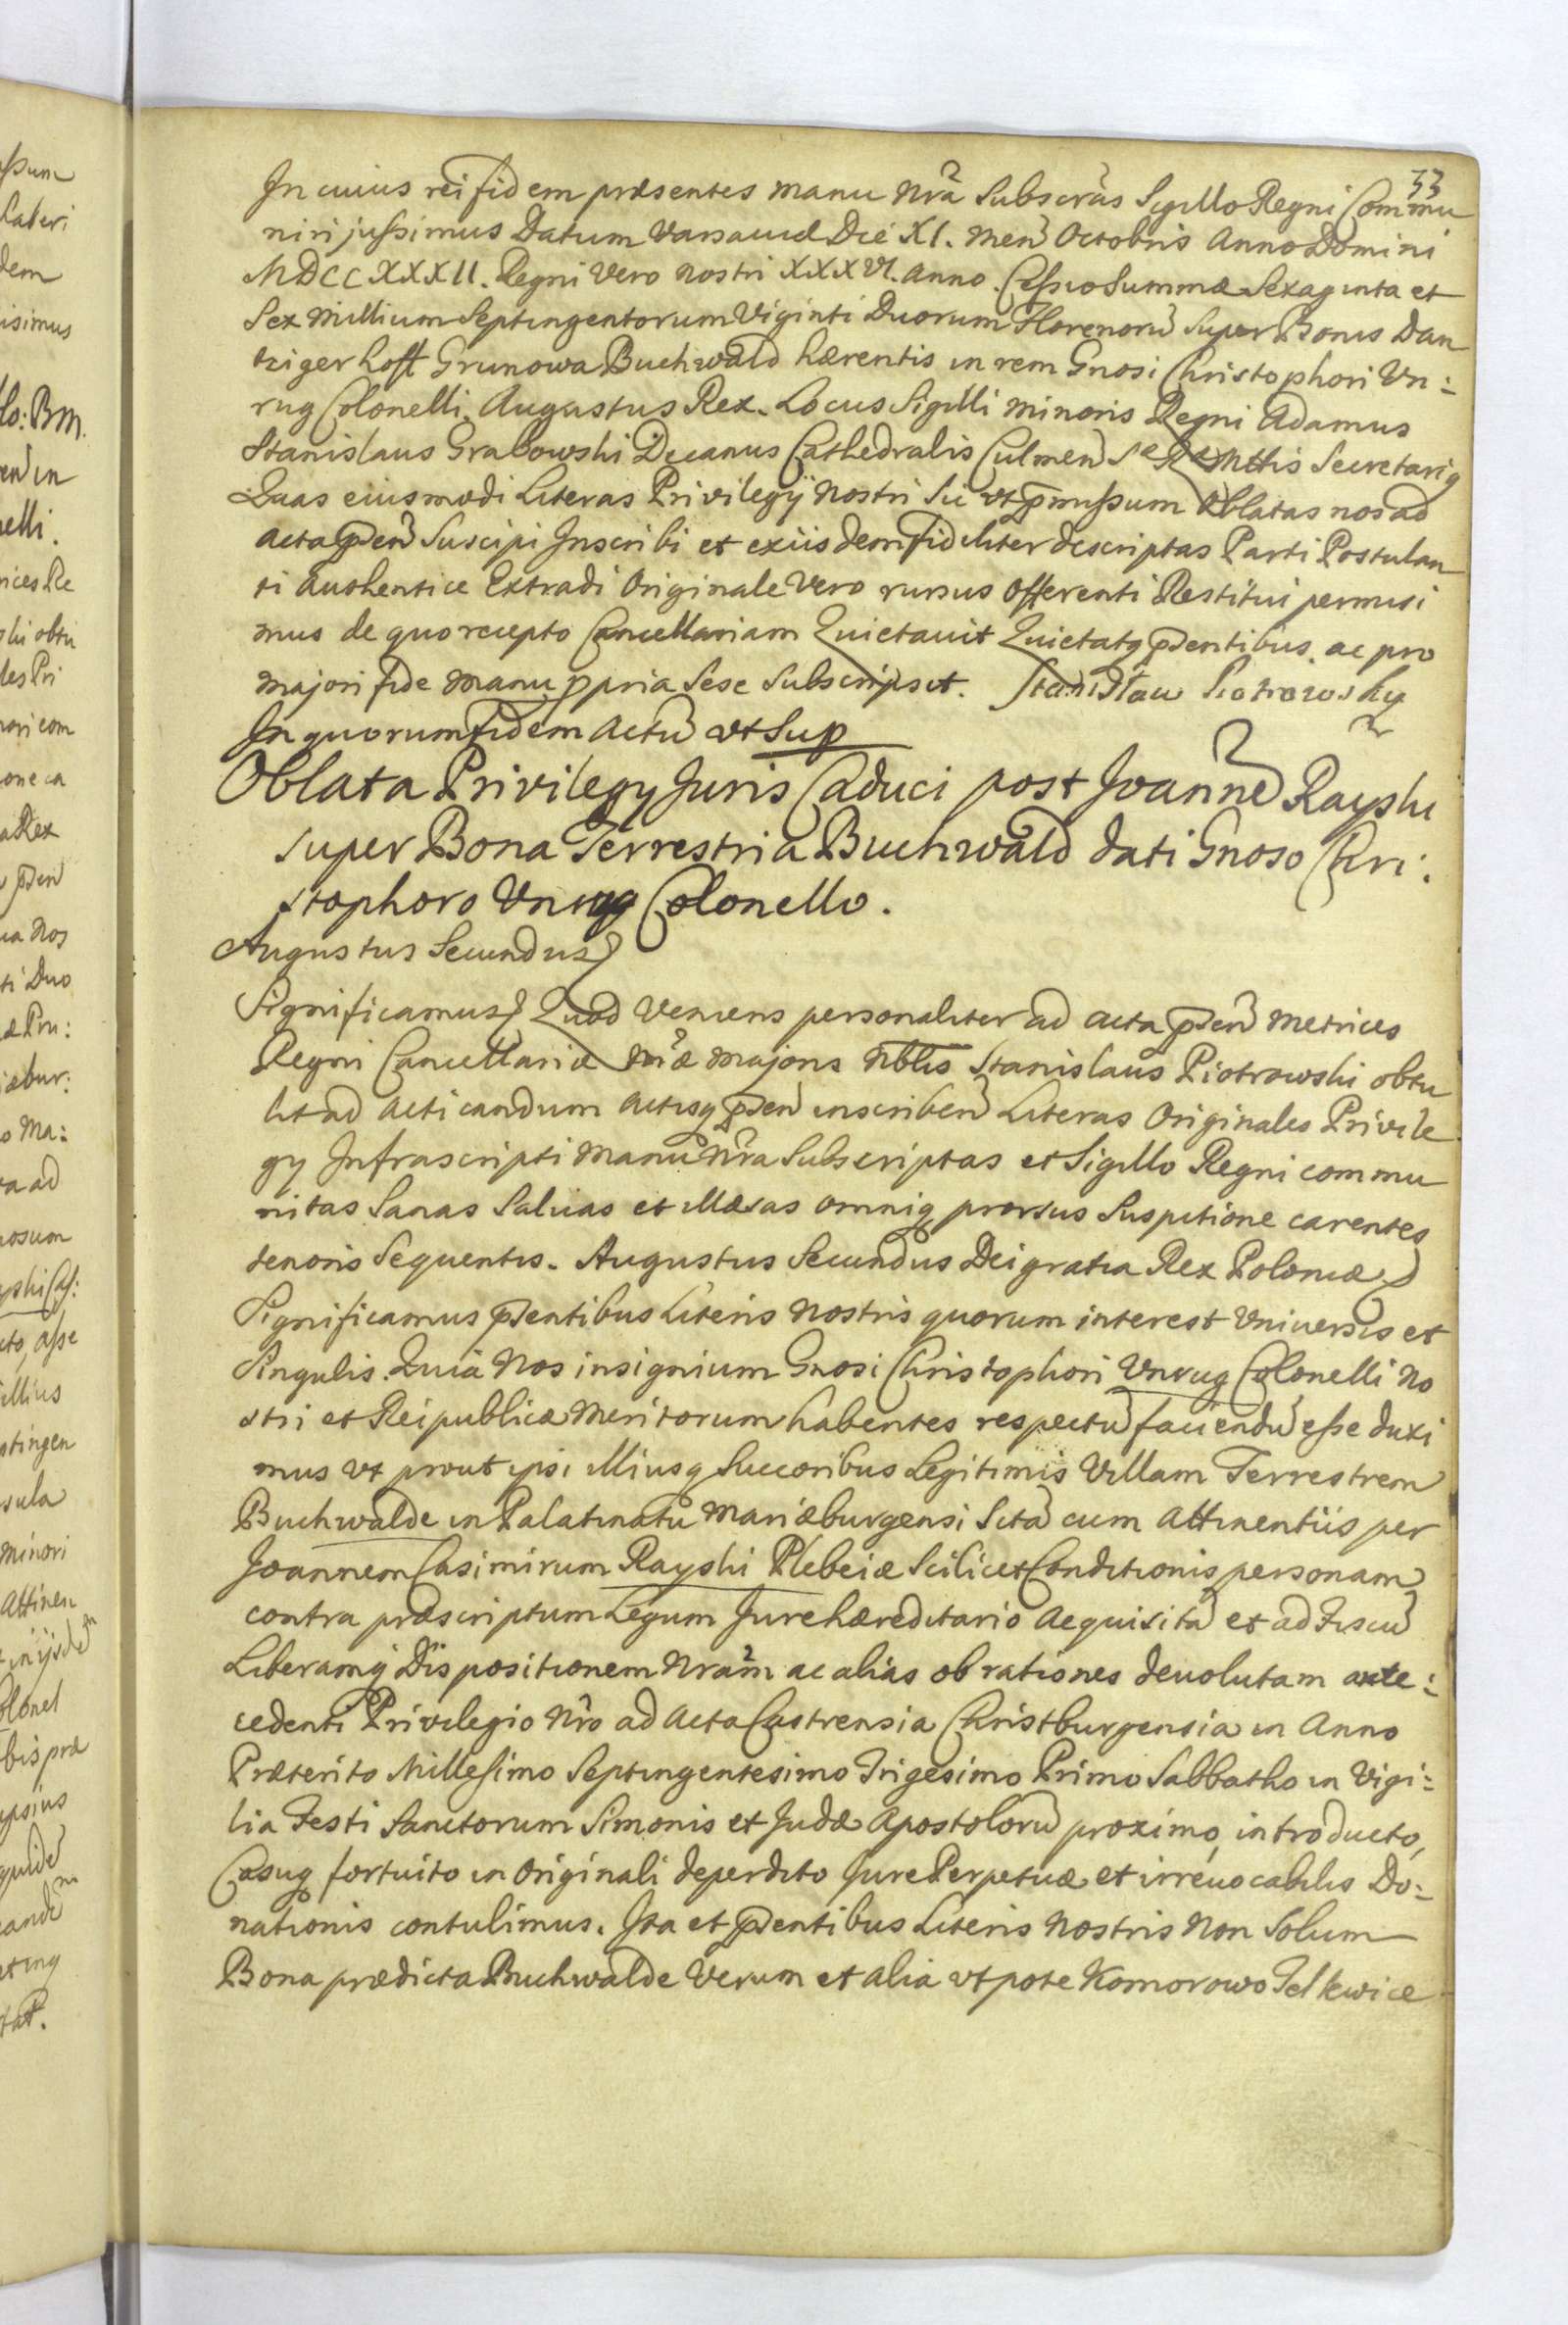 53
In cuius rei fidem præsentes manu nrã Subscrãs Sigillo Regni Commu
niri jussimus Datum Varsaviæ Die XI. Men Octobris Anno Domini
MDCCXXXII. Regni Vero nostri XXXVI. Anno. Cessio Summæ Sexaginta et
Sex Millium Septingentorum Viginti Duorum Florenorũ Super Bonis Dan
tziger hofft Grunowa Buchwald hærentis in rem Gnosi Christophori Vn:
rug Colonelli. Augustus Rex. Locus Sigilli minoris Regni Adamus
Stanislaus Grabowski Decanus Cathedralis Culmen S R Mttis Secretariq
Quas eiusmodi Literas Privilegij nostri Su vt p̃missum Oblatas nos ad
acta p̃sen Suscipi Inscribi et exiisdem fideliter descriptas Parti Postulan
ti Authentice Extradi Originale Vero rursus Offerenti Restitui permisi
mus de quo recepto Cancellariam Quietauit Quietatq p̃sentibus. ac pro
majori fide manu ppria Sese Subscripsit. Stanisław Piotrowsky
In quorum fidem Actũ vt Sup
Oblata Privilegy Juris Caduci post Joannẽ Rayski
super Bona Terrestria Buchwald dati Gnoso Chri:
stophoro Unrug Colonello.
Augustus Secundus
Significamus Quod Veniens personaliter ad acta p̃sen Metrices
Regni Cancellariæ nr̃æ majoris Nblis Stanislaus Piotrowski obtu
lit ad Acticandum Actisq p̃sen inscriben Literas Originales Privile
gy Infrascripti Manu Nr̃a Subscriptas et Sigillo Regni commu
nitas Sanas Saluas et illæsas omniq prorsus Suspitione carentes
tenoris Sequentis. Augustus Secundus Dei gratia Rex Poloniæ
Significamus p̃sentibus Literis Nostris quorum interest Vniuersis et
Singulis. Quia Nos insignium Gnosi Christophori Vnrug Colonelli No
stri et Reipublicæ Meritorum habentes respectũ faciendũ esse duxi
mus Vt prout ipsi illiusq Succoribus Legitimis Villam Terrestrem
Buchwalde in Palatinatu Mariæburgensi Sitã cum Attinentiis per
Joannem Casimirum Rayski Plebeiæ Scilicet Conditionis personam
contra præscriptum Legum Jure hæreditario Aequisitã et ad Fiscũ
Liberamq Dispositionem Nram̃ ac alias ob rationes deuolutam ante:
cedenti Privilegio Nrõ ad Acta Castrensia Christburgensia in Anno
Præterito Millesimo Septingentesimo Trigesimo Primo Sabbatho in Vigi:
lia Festi Sanctorum Simonis et Judæ Apostolorũ proximo, introducto,
Casuq fortuito in Originali deperdito Jure Perpetuæ et irreuocabilis Do:
nationis contulimus. Ita et p̃sentibus Literis Nostris Non Solum
Bona prædicta Buchwalde Verum et alia vtpote Komorowo Telkwice